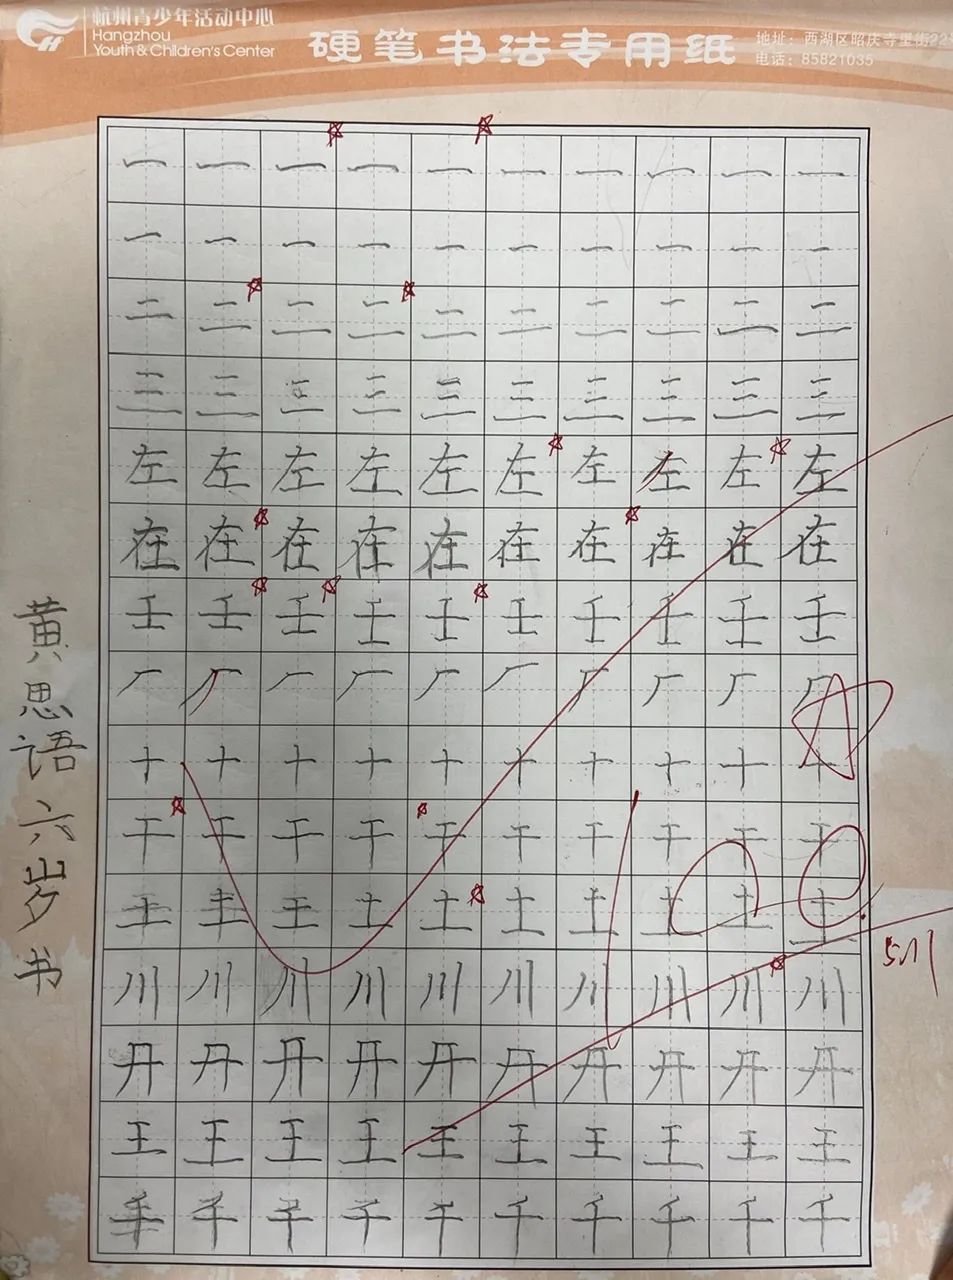 杭州青少年活动中心
Hangzhou
Youth & Children's Center
硬笔书法专用纸
地址：西湖区昭庆寺里街22
电话：85821035
一 一 一 一 一 一 一 一 一 一
一 一 一 一 一 一 一 一 一 一
二 二 二 二 二 二 二 二 二 二
三 三 三 三 三 三 三 三 三 三
左 左 左 左 左 左 左 左 左 左
在 在 在 在 在 在 在 在 在 在
壬 壬 壬 壬 壬 壬 壬 壬 壬 壬
厂 厂 厂 厂 厂 厂 厂 厂 厂 厂
十 十 十 十 十 十 十 十 十 十
干 干 干 干 干 干 干 干 干 干
土 土 土 土 土 土 土
川 川 川 川 川 川 川 川 川 川
丹 丹 丹 丹 丹 丹 丹 丹 丹 丹
王 王 王 王 王 王 王 王 王 王
千 千 千 千 千 千 千 千 千
黄思语六岁书
100
5.11